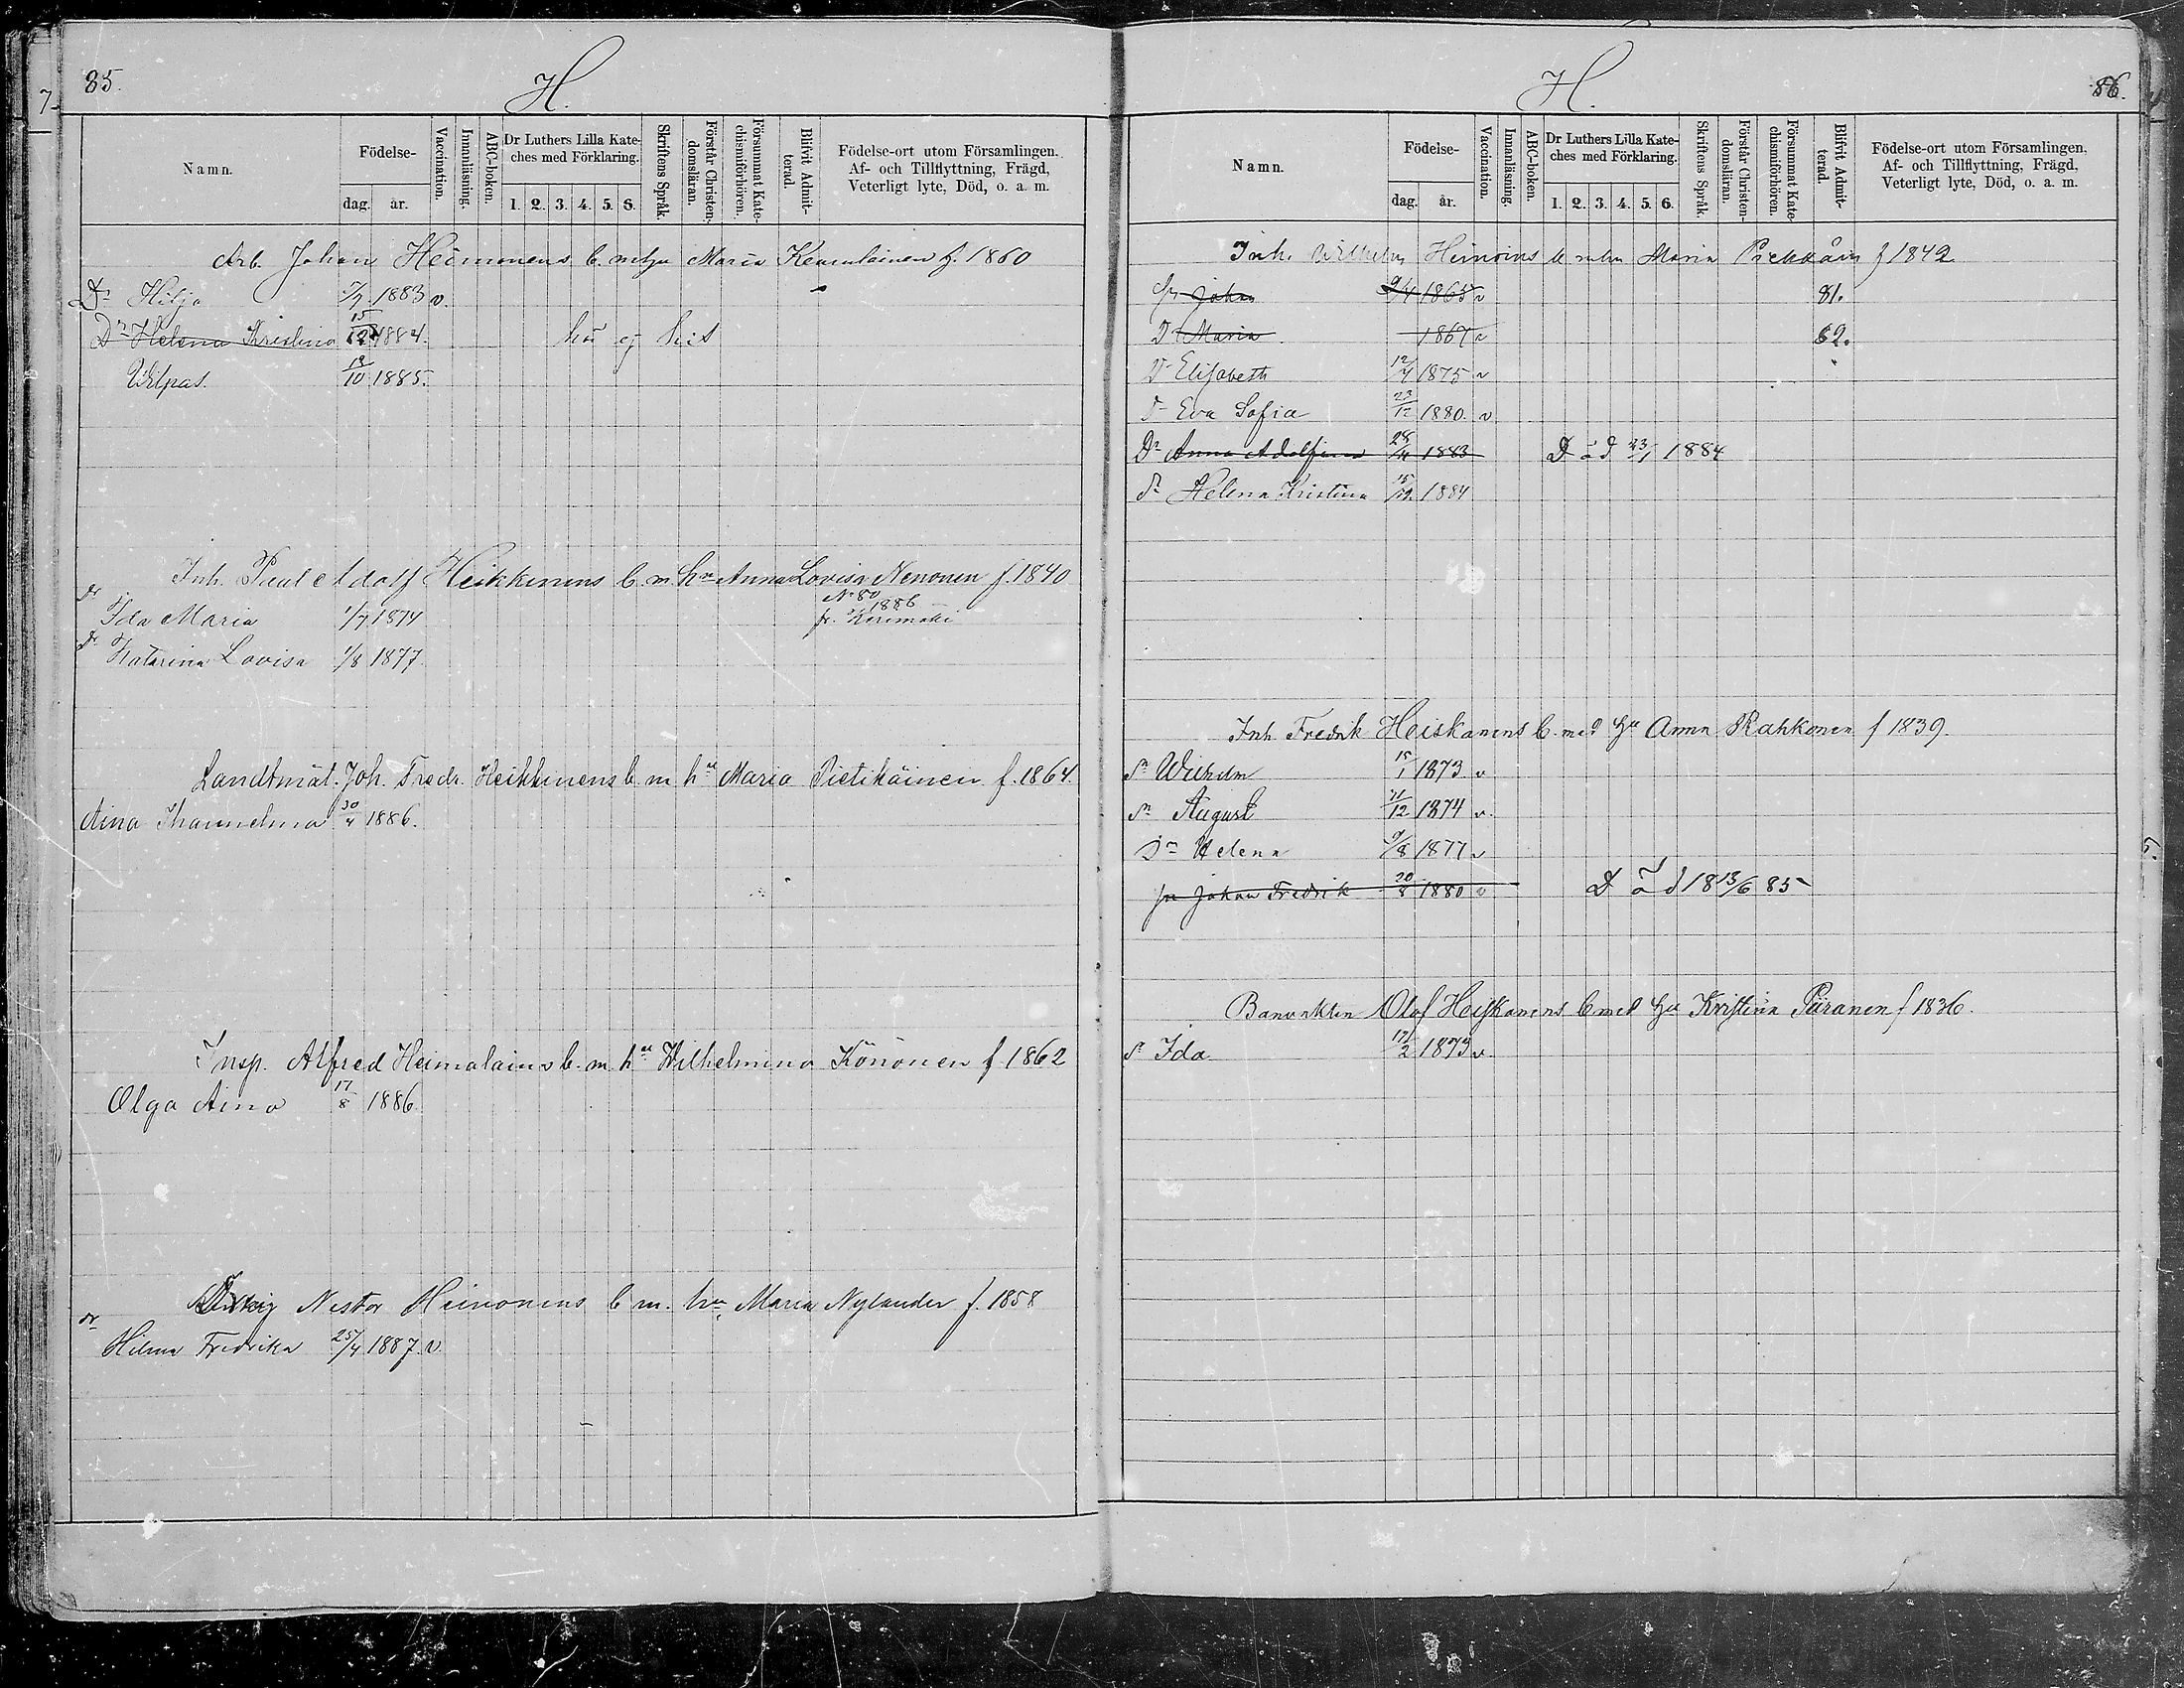 85.
H.
Namn.
Födelse-
dag. år.
Vaccination.
Innanläsning.
ABC-boken.
Dr Luthers Lilla Kate-
ches med Förklaring.
1. 2. 3. 4. 5. 6.
Skriftens Språk.
Förstår Christen-
domsläran.
Försummat Kate-
chismiförhören.
Blifvit Admit-
terad.
Födelse-ort utom Församlingen.
Af- och Tillflyttning, Frägd,
Veterligt lyte, Död, o. a. m.
Arb. Johan Heimonens b. m Maria f. 1860
Dr Hilja 1883 v.
Dr Helena Kristina 15/12 1884. hör ej hit
Wilpas. 13/10 1885.
Inh. Paul Adolf Heikkinens b. m. hu Anna Lovisa Nenonen f. 1840
No 80
dr Ida Maria 1/7 1874 1886
fr. Kerimäki
dr Katarina Lovisa 1/8 1877.
Landtmät. Joh. Fredr. Heikkinens b. m hu Maria Pietikäinen f. 1864.
Aina 30/4 1886.
Insp. Alfred Heimalains b. m. hu Wilhelmina Könönen f 1862
Olga Aino 17/8 1886.
Nestor Heinonens b m. hu Maria Nylander f. 1858
dr
Hilma Fredrika 25/4 1887. v.
H.
86.
Namn.
Födelse-
dag. år.
Vaccination.
Innanläsning.
ABC-boken.
Dr Luthers Lilla Kate-
ches med Förklaring.
1. 2. 3. 4. 5. 6.
Skriftens Språk.
Förstår Christen-
domsläran.
Försummat Kate-
chismiförhören.
Blifvit Admit-
terad.
Födelse-ort utom Församlingen,
Af- och Tillflyttning, Frägd,
Veterligt lyte, Död, o. a. m.
Inh. Wilhelm Heinoins b m hu Maria f 1842
Johan 9/4 1865 v 81.
D Maria 1867 v 82.
D Elisabeth 12/4 1875 v
D Eva Sofia 23/12 1880. v
Dr Anna Adolfina 28/4 1883 D ö d 23/1 1884
Dr Helena Kristina 15/12 1884
Inh. Fredrik Heiskanens b. med hu Anna Rahkonen f 1839.
Sn Wilhelm 15/1 1873 v
Sn August 21/12 1874 v.
Dr Helena 9/8 1877 v
Sn Johan Fredrik 20/8 1880 v D ö d 18 13/6 85
Banvakten Olof Heiskanens b med hu Kristina Piiranen f 1836.
Dr Ida 17/2 1873 v.